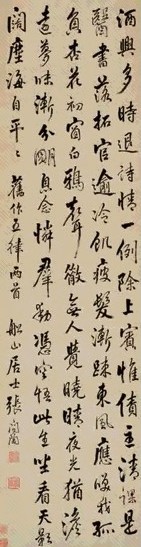 酒興多時退詩情一例除上賓惟債主清課是
醫書落拓官逾冷飢疲髮漸疎東風應笑我孤
負杏花初窗白鴉聲徹無人覺曉晴夜光猶澹
遠夢味漸分朙息念憐羣動憑空悟此生坐看天影
闊塵海自平〻舊作五律兩首 船山居士張問陶